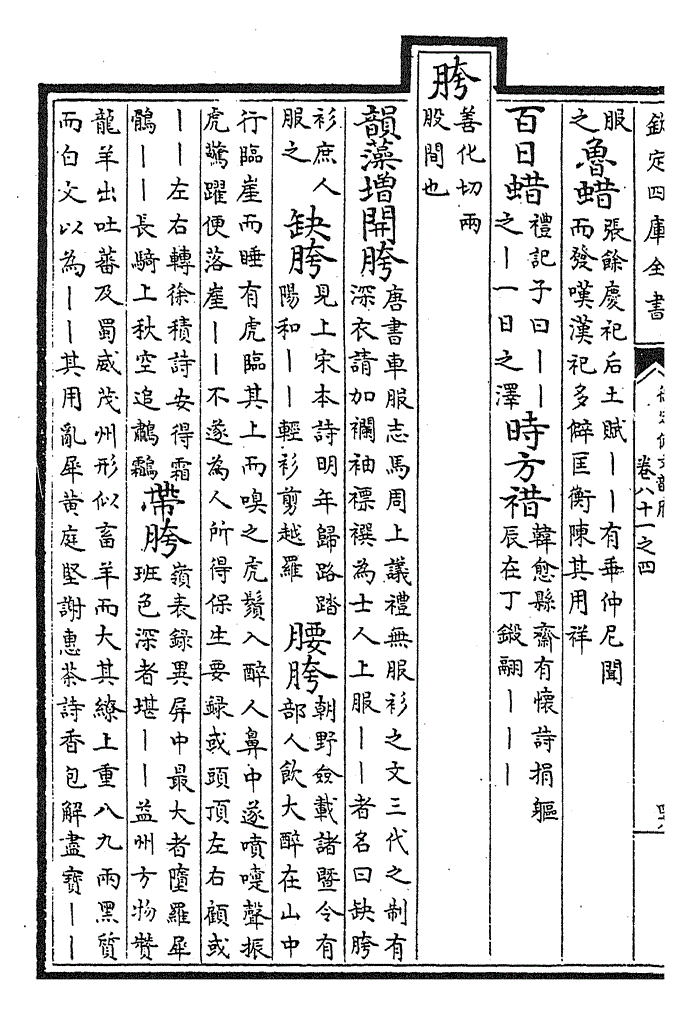 欽定四庫全書
卷八十一之四
服之
魯蜡
張餘慶祀后土賦｜｜有乖仲尼聞
而發嘆漢祀多僻匡衡陳其用祥
百日蜡
禮記子曰｜｜
之｜一日之澤
時方䄍
韓愈縣齋有懷詩捐軀
辰在丁鎩翮｜｜｜
胯
善化切兩
股間也
韻藻增開胯
唐書車服志馬周上議禮無服衫之文三代之制有
深衣請加襴袖褾襈為士人上服｜｜者名曰缺胯
衫庶人
服之
缺胯
見上宋本詩明年歸路踏
陽和｜｜輕衫剪越羅
腰胯
朝野僉載諸暨令有
部人飲大醉在山中
行臨崖而睡有虎臨其上而嗅之虎鬚入醉人鼻中遂噴嚏聲振
虎驚躍便落崖｜｜不遂為人所得保生要録或頭頂左右顧或
｜｜左右轉徐積詩安得霜
鶻｜｜長騎上秋空追鷫鸘
帶胯
嶺表録異犀中最大者墮羅犀
班色深者堪｜｜益州方物贊
龍羊出吐蕃及蜀威茂州形似畜羊而大其繚上重八九兩黑質
而白文以為｜｜其用亂犀黄庭堅謝惠茶詩香包解盡寶｜｜